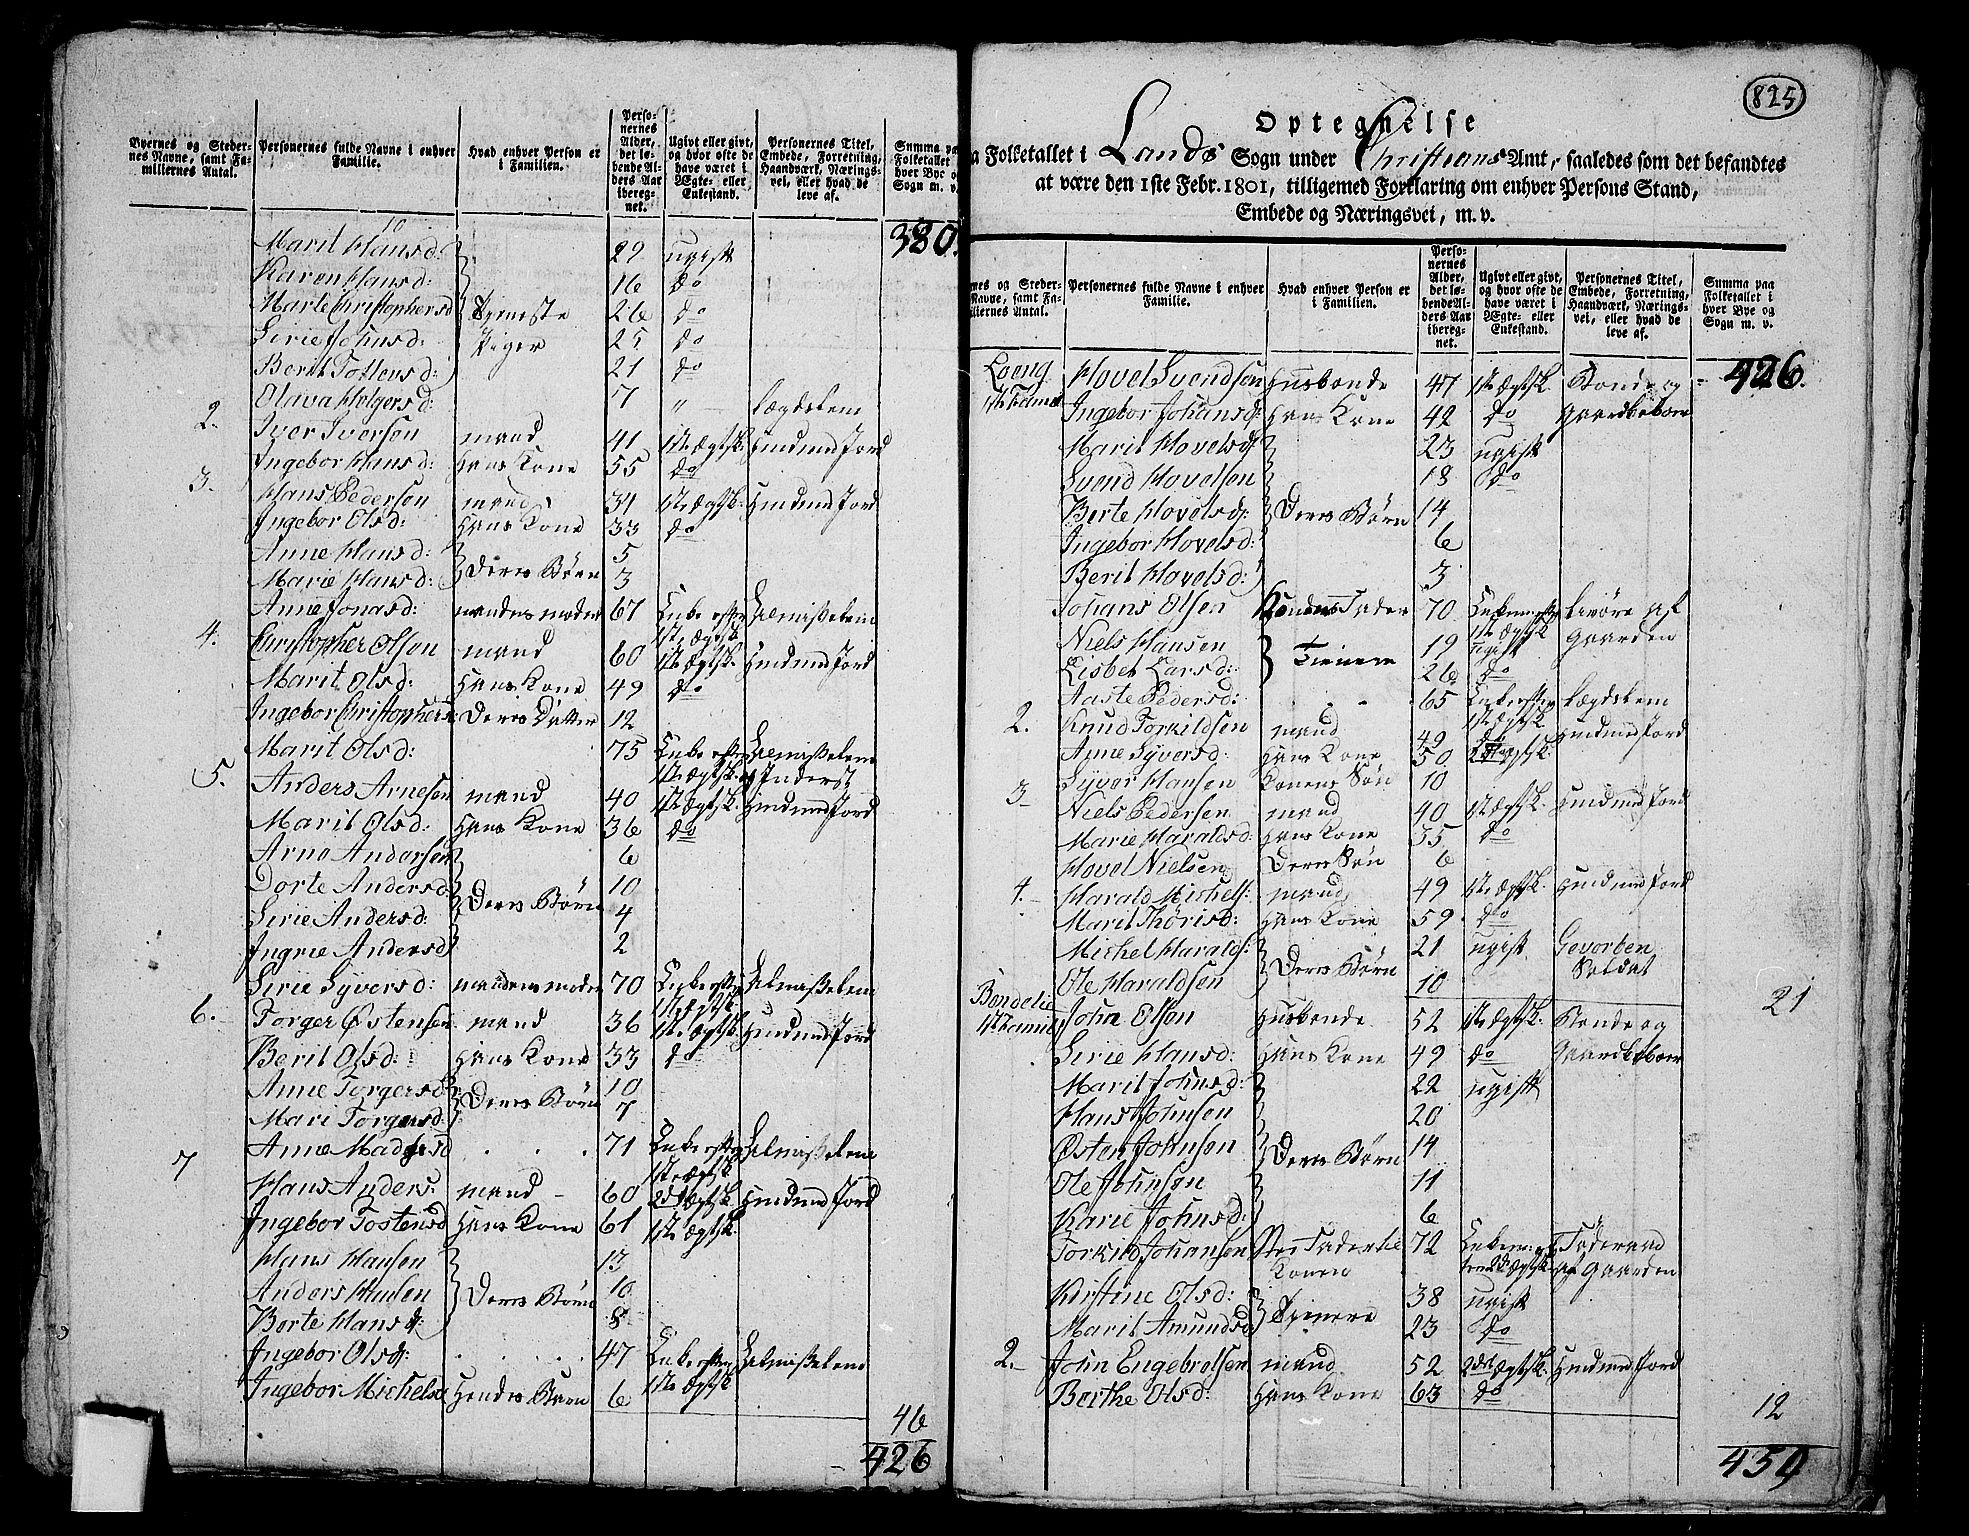 Byernes og Stedernes Navne, samt Familiernes Antal. | Personernes fulde Navne i enhver Familie. | Hvad enhver Person er i Familien. | Personernes Alder, det løbende Alders Aar iberegnet. | Ugivt eller givt, og hvor ofte de have været i Ægte- eller Enkestand. | Personernes Titel, Embede, Forretning, Haandværk, Næringsvei, eller hvad de leve af. | Summa paa Folketallet i hver Bye og Sogn m. v.
10
380.
Marit Hansd: | 29 | ugift
Karen Hansd: | 16 | do
Marte Christophersd | Tieneste | 26 | do
Sirie Johnsd: | Piger | 25 | do
Berit Tostensd: | 21 | do
Olava Holgersd: | 7 | " | Lægdslem
2. Iver Iversen | mand | 41 | 1ste ægtsk. | Huusmd med Jord
Ingebor Hansd: | Hans Kone | 55 | do
3. Hans Pedersen | mand | 34 | 1ste ægtsk. | Huusmd med Jord
Ingebor Olsd: | Hans Kone | 33 | do
Anne Hansd: | 5
Marie Hansd: | Deres Børn | 3
Anne Jonasd: | mandens moder | 67 | Enke efter 1ste ægtsk. | Almisselem
4. Christopher Olsen | mand | 60 | 1ste ægtsk. | Huusmd med Jord
Marit Olsd: | Hans Kone | 49 | do
Ingebor Christophersd: | Deres Datter | 12
Marit Olsd: | 75 | Enke efter 1ste ægtsk. | Almisselem og Inderst
5. Anders Arnesen | mand | 40 | 1ste ægtsk. | Huusmd med Jord
Marit Olsd: | Hans Kone | 36 | do
Arne Andersen | 6
Dorte Andersd: | 10
Sirie Andersd: | Deres Børn | 4
Ingrie Andersd | 2
Sirie Syversd: | mandens moder | 70 | Enke efter 1ste ægtsk. | Almisselem
6. Torger Østensen | mand | 36 | 1ste ægtsk. | Huusmd med Jord
Berit Olsd: | Hans Kone | 33 | do
Anne Torgersd: | 10
Mari Torgersd: | Deres Børn | 7
Anne Madsesd | . . . | 71 | Enke efter 1ste ægtsk. | Almisselem
7 Hans Anders: | mand | 60 | 2det ægtsk. | Huusmd med Jord
Ingebor Tostensd | Hans Kone | 61 | 1ste ægtsk.
Hans Hansen | 13
Anders Hansen | Deres Børn | 10
Berte Hansd: | 8
Ingebor Olsd: | . . . . | 47 | Enke efter 1ste ægtsk. | Almisselem
Ingebor Michelsd | Hendes Barn | 6
46
426
825
Optegnelse
Folketallet i Lands Sogn under Christians Amt, saaledes som det befandtes
at være den 1ste Febr. 1801, tilligemed Forklaring om enhver Persons Stand,
Embede og Næringsvei, m. v.
nes og Steder- Navne, samt Familiernes Antal. | Personernes fulde Navne i enhver Familie. | Hvad enhver Person er i Familien. | Personernes Alder, det løbende Alders Aar iberegnet. | Ugivt eller givt, og hvor ofte de have været i Ægte- eller Enkestand. | Personernes Titel, Embede, Forretning, Haandværk, Næringsvei, eller hvad de leve af. | Summa paa Folketallet i hver Bye og Sogn m. v.
426.
Loeng 1ste Familie | Hovel Svendsen | Husbonde | 47 | 1ste ægtsk. | Bonde og
Ingebor Johansd: | Hans Kone | 42 | do | Gaardbeboer
Marit Hovelsd: | 23 | ugift
Svend Hovelsen | 18 | do
Berte Hovelsd: | Deres Børn | 14
Ingebor Hovelsd: | 6
Berit Hovelsd: | 3
Johans Olsen | Kondens Fader | 70 | 1ste ægtsk | Livøre af Gaarden
Niels Hansen | 19 | ugift
Lisbet Larsd: | Tienere | 26 | do
Aaste Pedersd: | . . | 65 | Enke efter 1ste ægtsk. | Lægdslem
2. Knud Torkildsen | mand | 49 | Huusmd med Jord
Anne Syversd: | Hans Kone | 50 | 2det ægtsk.
Syver Hansen | Konens Søn | 10
3 Niels Pedersen | mand | 40 | 1ste ægtsk. | Huusmd med Jord
Marie Haraldsd: | Hans Kone | 35 | do
Hovel Nielsen | Deres Søn | 6
4. Harald Michels: | mand | 49 | 1ste ægtsk. | Huusmd med Jord
Marit Thorisd: | Hans Kone | 59 | do
Michel Haralds: | 21 | ugift | Gevorben Soldat
Ole Haraldsen | Deres Børn | 10
21
Bondelie 1ste Familie | John Olsen | Husbonde | 52 | 1ste ægtsk. | Bonde og
Sirie Hansd: | Hans Kone | 49 | do | Gaardbeboer
Marit Johnsd: | 22 | ugift
Hans Johnsen | 20
Østen Johnsen | Deres Børn | 14
Ole Johnsen | 11
Karie Johnsd: | 6
Torkild Johansen | Fader til Konen | 72 | 2det ægtsk. | Føderaad af Gaarden
Kirstine Olsd: | 38 | ugift
Marit Amundsd: | Tienere | 23 | do
2. John Engebretsen | mand | 52 | 2det ægtsk. | Huusmd med Jord
Berthe Olsd: | Hans Kone | 63 | do
12
459